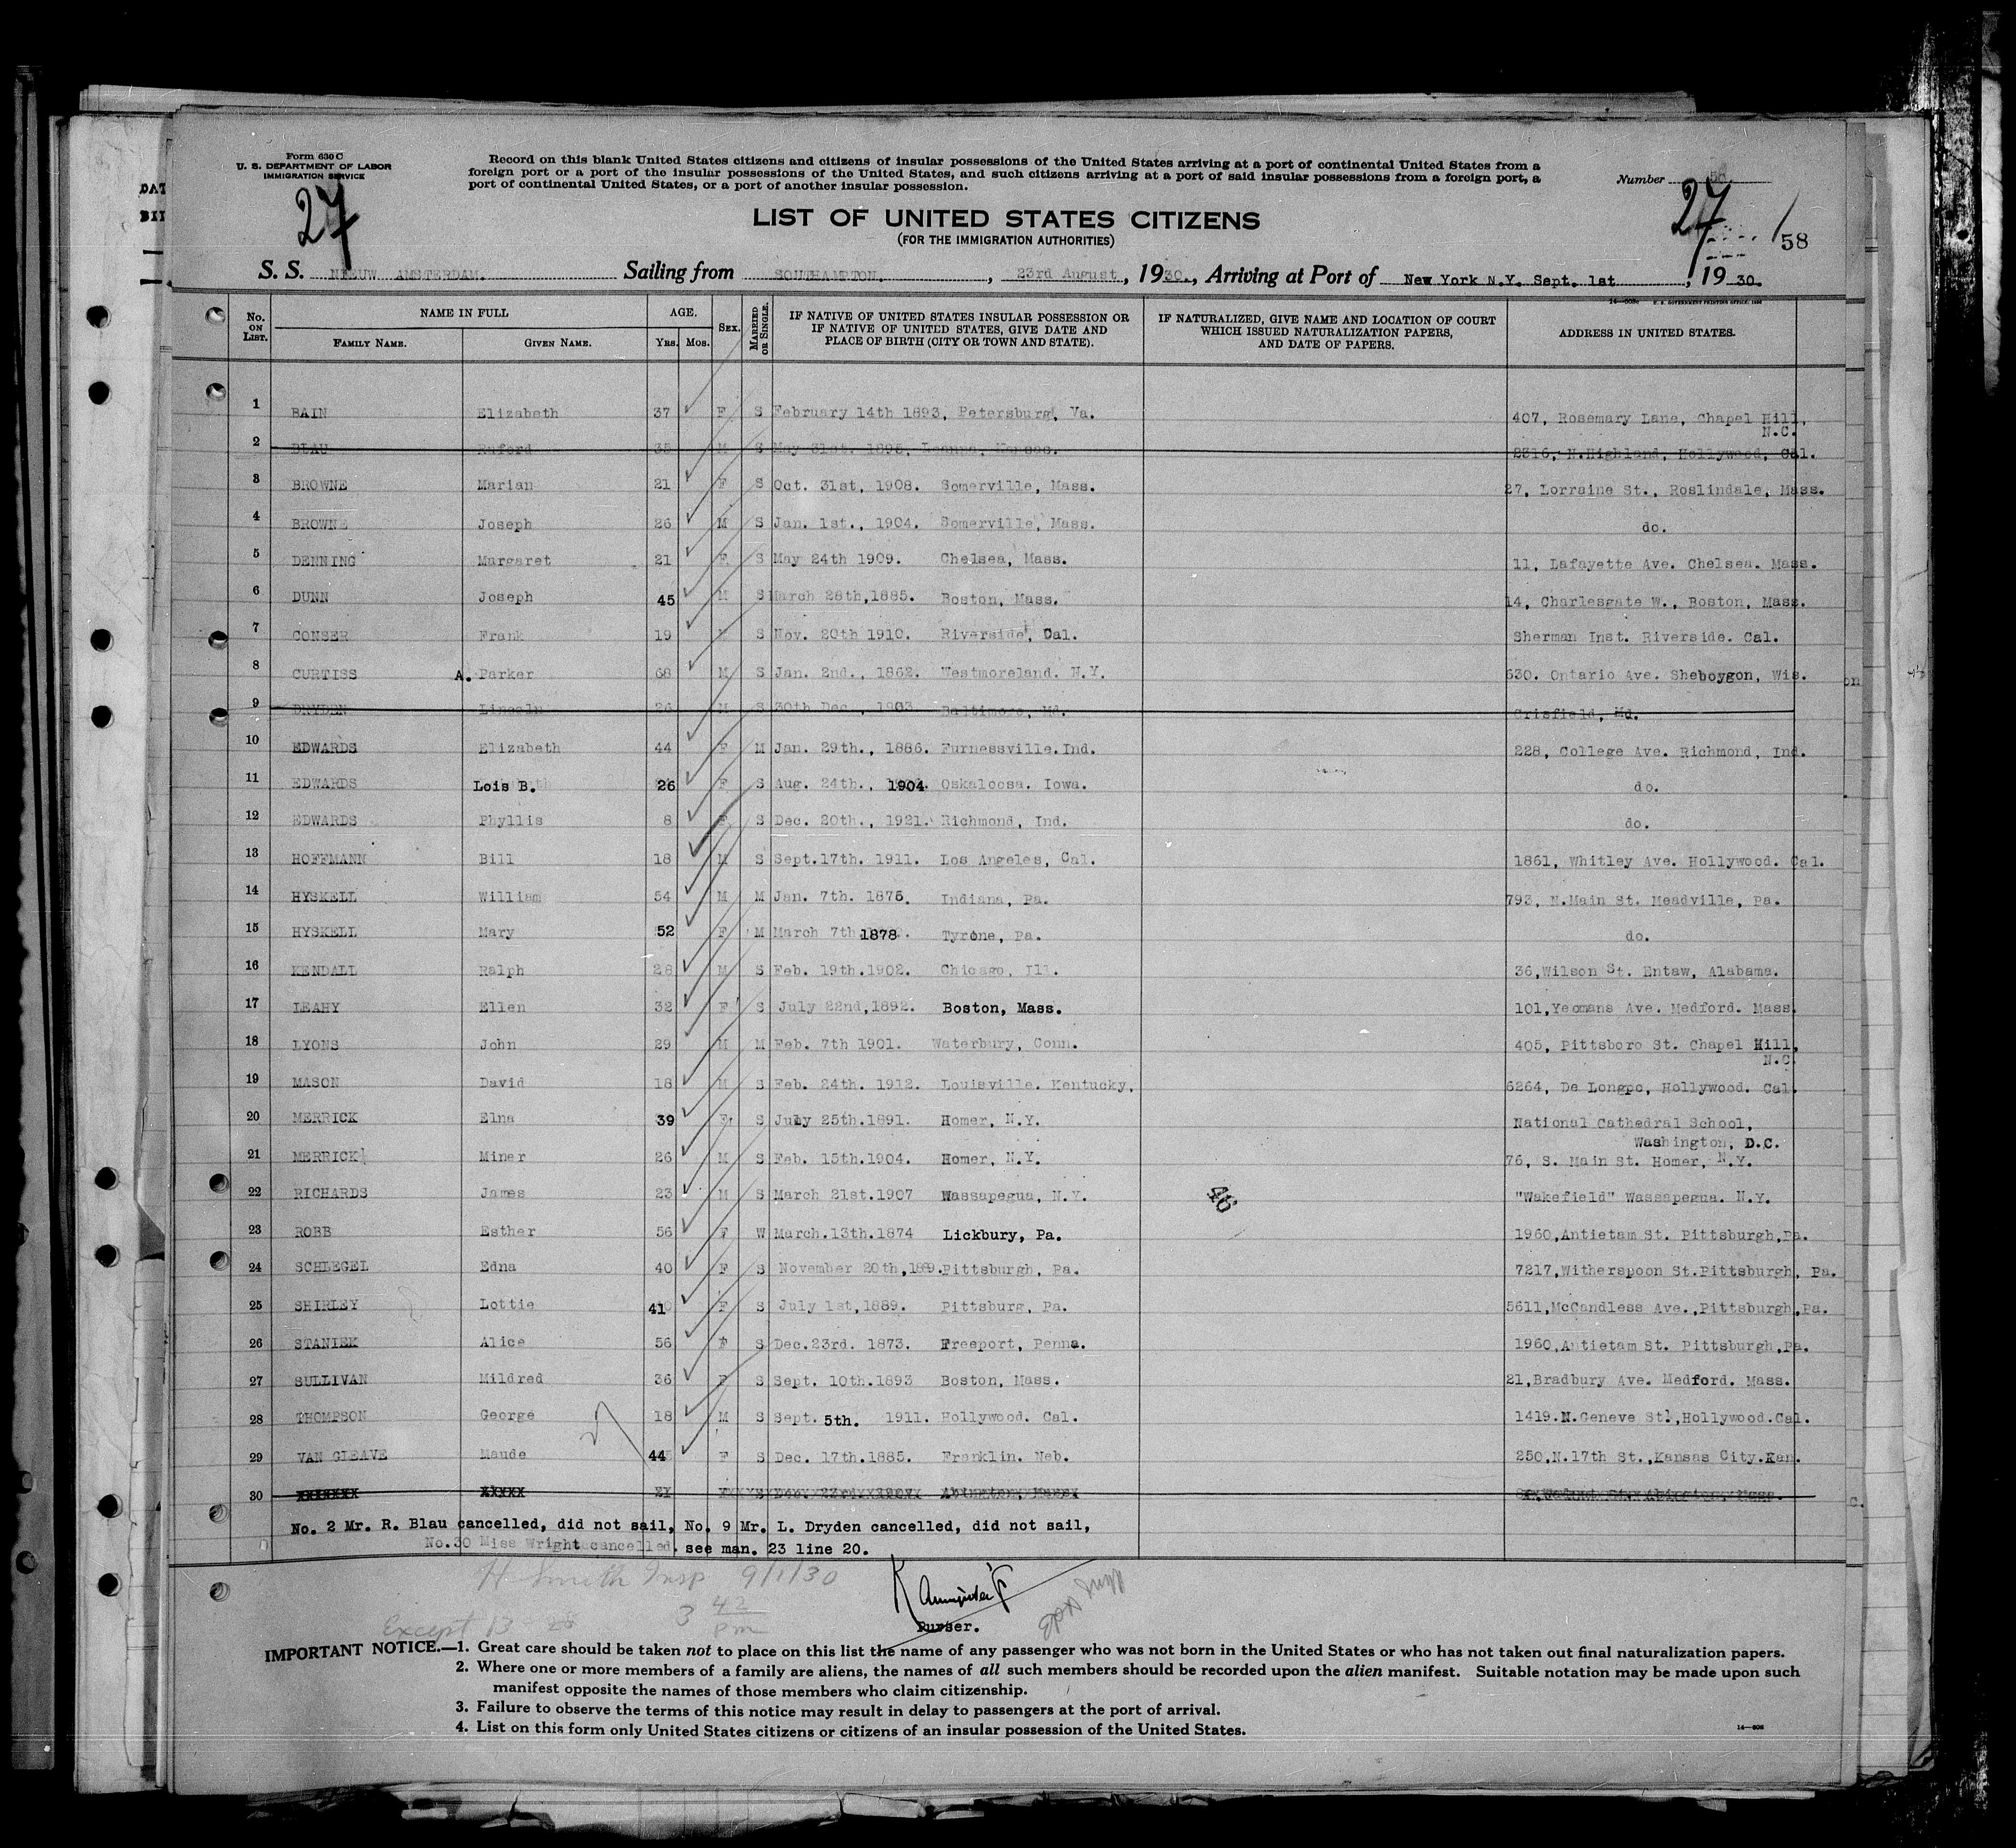 Form 630 C
U. S. DEPARTMENT OF LABOR
IMMIGRATION SERVICE
Record on this blank United States citizens and citizens of insular possessions of the United States arriving at a port of continental United States from a
foreign port or a port of the insular possessions of the United States, and such citizens arriving at a port of said insular possessions from a foreign port, a
port of continental United States, or a port of another insular possession.
Number 58
27
27 / 58
LIST OF UNITED STATES CITIZENS
(FOR THE IMMIGRATION AUTHORITIES)
S. S. NIEUW AMSTERDAM. Sailing from SOUTHAMPTON. , 23rd August , 1930., Arriving at Port of New York N.Y. Sept. 1st , 1930.
No. ON LIST. NAME IN FULL FAMILY NAME. GIVEN NAME. AGE. YRS. MOS. SEX. MARRIED OR SINGLE. IF NATIVE OF UNITED STATES INSULAR POSSESSION OR IF NATIVE OF UNITED STATES, GIVE DATE AND PLACE OF BIRTH (CITY OR TOWN AND STATE). IF NATURALIZED, GIVE NAME AND LOCATION OF COURT WHICH ISSUED NATURALIZATION PAPERS, AND DATE OF PAPERS. ADDRESS IN UNITED STATES.
1 BAIN Elizabeth 37 F S February 14th 1893, Petersburg, Va. 407, Rosemary Lane, Chapel Hill, N.C.
2 BLAU Ruford 35 M S May 31st. 1895, Leanna, Kansas. 2316, N.Highland, Hollywood, Cal.
3 BROWNE Marian 21 F S Oct. 31st, 1908. Somerville, Mass. 27, Lorraine St., Roslindale, Mass.
4 BROWNE Joseph 26 M S Jan. 1st., 1904. Somerville, Mass. do.
5 DENNING Margaret 21 F S May 24th 1909. Chelsea, Mass. 11, Lafayette Ave. Chelsea. Mass.
6 DUNN Joseph 45 M S March 28th,1885. Boston, Mass. 14, Charlesgate W., Boston, Mass.
7 CONSER Frank 19 M S Nov. 20th 1910. Riverside, Cal. Sherman Inst. Riverside. Cal.
8 CURTISS A. Parker 68 M S Jan. 2nd., 1862. Westmoreland. N.Y. 630. Ontario Ave. Sheboygon, Wis.
9 DRYDEN Lincoln 26 M S 30th Dec., 1903. Baltimore, Md. Crisfield, Md.
10 EDWARDS Elizabeth 44 F M Jan. 29th., 1886. Furnessville.Ind. 228, College Ave. Richmond, Ind.
11 EDWARDS Lois B. 26 F S Aug. 24th., 1904 Oskaloosa. Iowa. do.
12 EDWARDS Phyllis 8 F S Dec. 20th., 1921. Richmond, Ind. do.
13 HOFFMANN Bill 18 M S Sept.17th. 1911. Los Angeles, Cal. 1861, Whitley Ave. Hollywood. Cal.
14 HYSKELL William 54 M M Jan. 7th. 1876. Indiana, Pa. 793, N.Main St. Meadville, Pa.
15 HYSKELL Mary 52 F M March 7th 1878 Tyrone, Pa. do.
16 KENDALL Ralph 28 M S Feb. 19th.1902. Chicago, Ill. 36,Wilson St. Entaw, Alabama.
17 LEAHY Ellen 32 F S July 22nd,1892. Boston, Mass. 101,Yeomans Ave. Medford. Mass.
18 LYONS John 29 M M Feb. 7th 1901. Waterbury, Conn. 405, Pittsboro St. Chapel Hill, N.C.
19 MASON David 18 M S Feb. 24th. 1912. Louisville. Kentucky, 6264, De Longpo, Hollywood. Cal.
20 MERRICK Elna 39 F S July 25th.1891. Homer, N.Y. National Cathedral School, Washington, D.C.
21 MERRICK Miner 26 M S Feb. 15th.1904. Homer, N.Y. 76, S. Main St. Homer, N.Y.
22 RICHARDS James 23 M S March 21st.1907 Wassapegua, N.Y. "Wakefield" Wassapegua. N.Y.
23 ROBB Esther 56 F W March.13th.1874 Lickbury, Pa. 1960,Antietam St. Pittsburgh,Pa.
24 SCHLEGEL Edna 40 F S November 20th,189. Pittsburgh, Pa. 7217,Witherspoon St.Pittsburgh, Pa.
25 SHIRLEY Lottie 41 F S July 1st,1889. Pittsburg, Pa. 5611,McCandless Ave.,Pittsburgh,Pa.
26 STANIEK Alice 56 F S Dec.23rd. 1873. Freeport, Penna. 1960,Antietam St. Pittsburgh,Pa.
27 SULLIVAN Mildred 36 F S Sept. 10th.1893 Boston, Mass. 21,Bradbury Ave. Medford. Mass.
28 THOMPSON George 18 M S Sept. 5th. 1911. Hollywood. Cal. 1419.N.Geneve St.,Hollywood.Cal.
29 VAN CLEAVE Maude 44 F S Dec. 17th.1885. Franklin. Neb. 250,N.17th St.,Kansas City.Kan.
30
No. 2 Mr. R. Blau cancelled, did not sail, No. 9 Mr. L. Dryden cancelled, did not sail,
No.30 Miss Wright cancelled. see man. 23 line 20.
H Smith Insp 9/1/30
Except 13 28 3 42 pm
Purser.
IMPORTANT NOTICE.—1. Great care should be taken not to place on this list the name of any passenger who was not born in the United States or who has not taken out final naturalization papers.
2. Where one or more members of a family are aliens, the names of all such members should be recorded upon the alien manifest. Suitable notation may be made upon such
manifest opposite the names of those members who claim citizenship.
3. Failure to observe the terms of this notice may result in delay to passengers at the port of arrival.
4. List on this form only United States citizens or citizens of an insular possession of the United States.